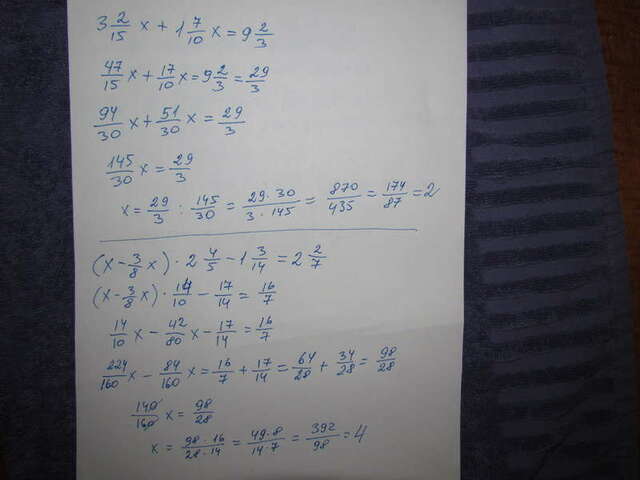 3 2/15 x + 1 7/10 x = 9 2/3
47/15 x + 17/10 x = 9 2/3 = 29/3
94/30 x + 51/30 x = 29/3
145/30 x = 29/3
x = 29/3 : 145/30 = 29·30/3·145 = 870/435 = 174/87 = 2
(x - 3/8 x) · 2 4/5 - 1 3/14 = 2 2/7
(x - 3/8 x) · 14/10 - 17/14 = 16/7
14/10 x - 42/80 x - 17/14 = 16/7
224/160 x - 84/160 x = 16/7 + 17/14 = 64/28 + 34/28 = 98/28
140/160 x = 98/28
x = 98·16/28·14 = 49·8/14·7 = 392/98 = 4